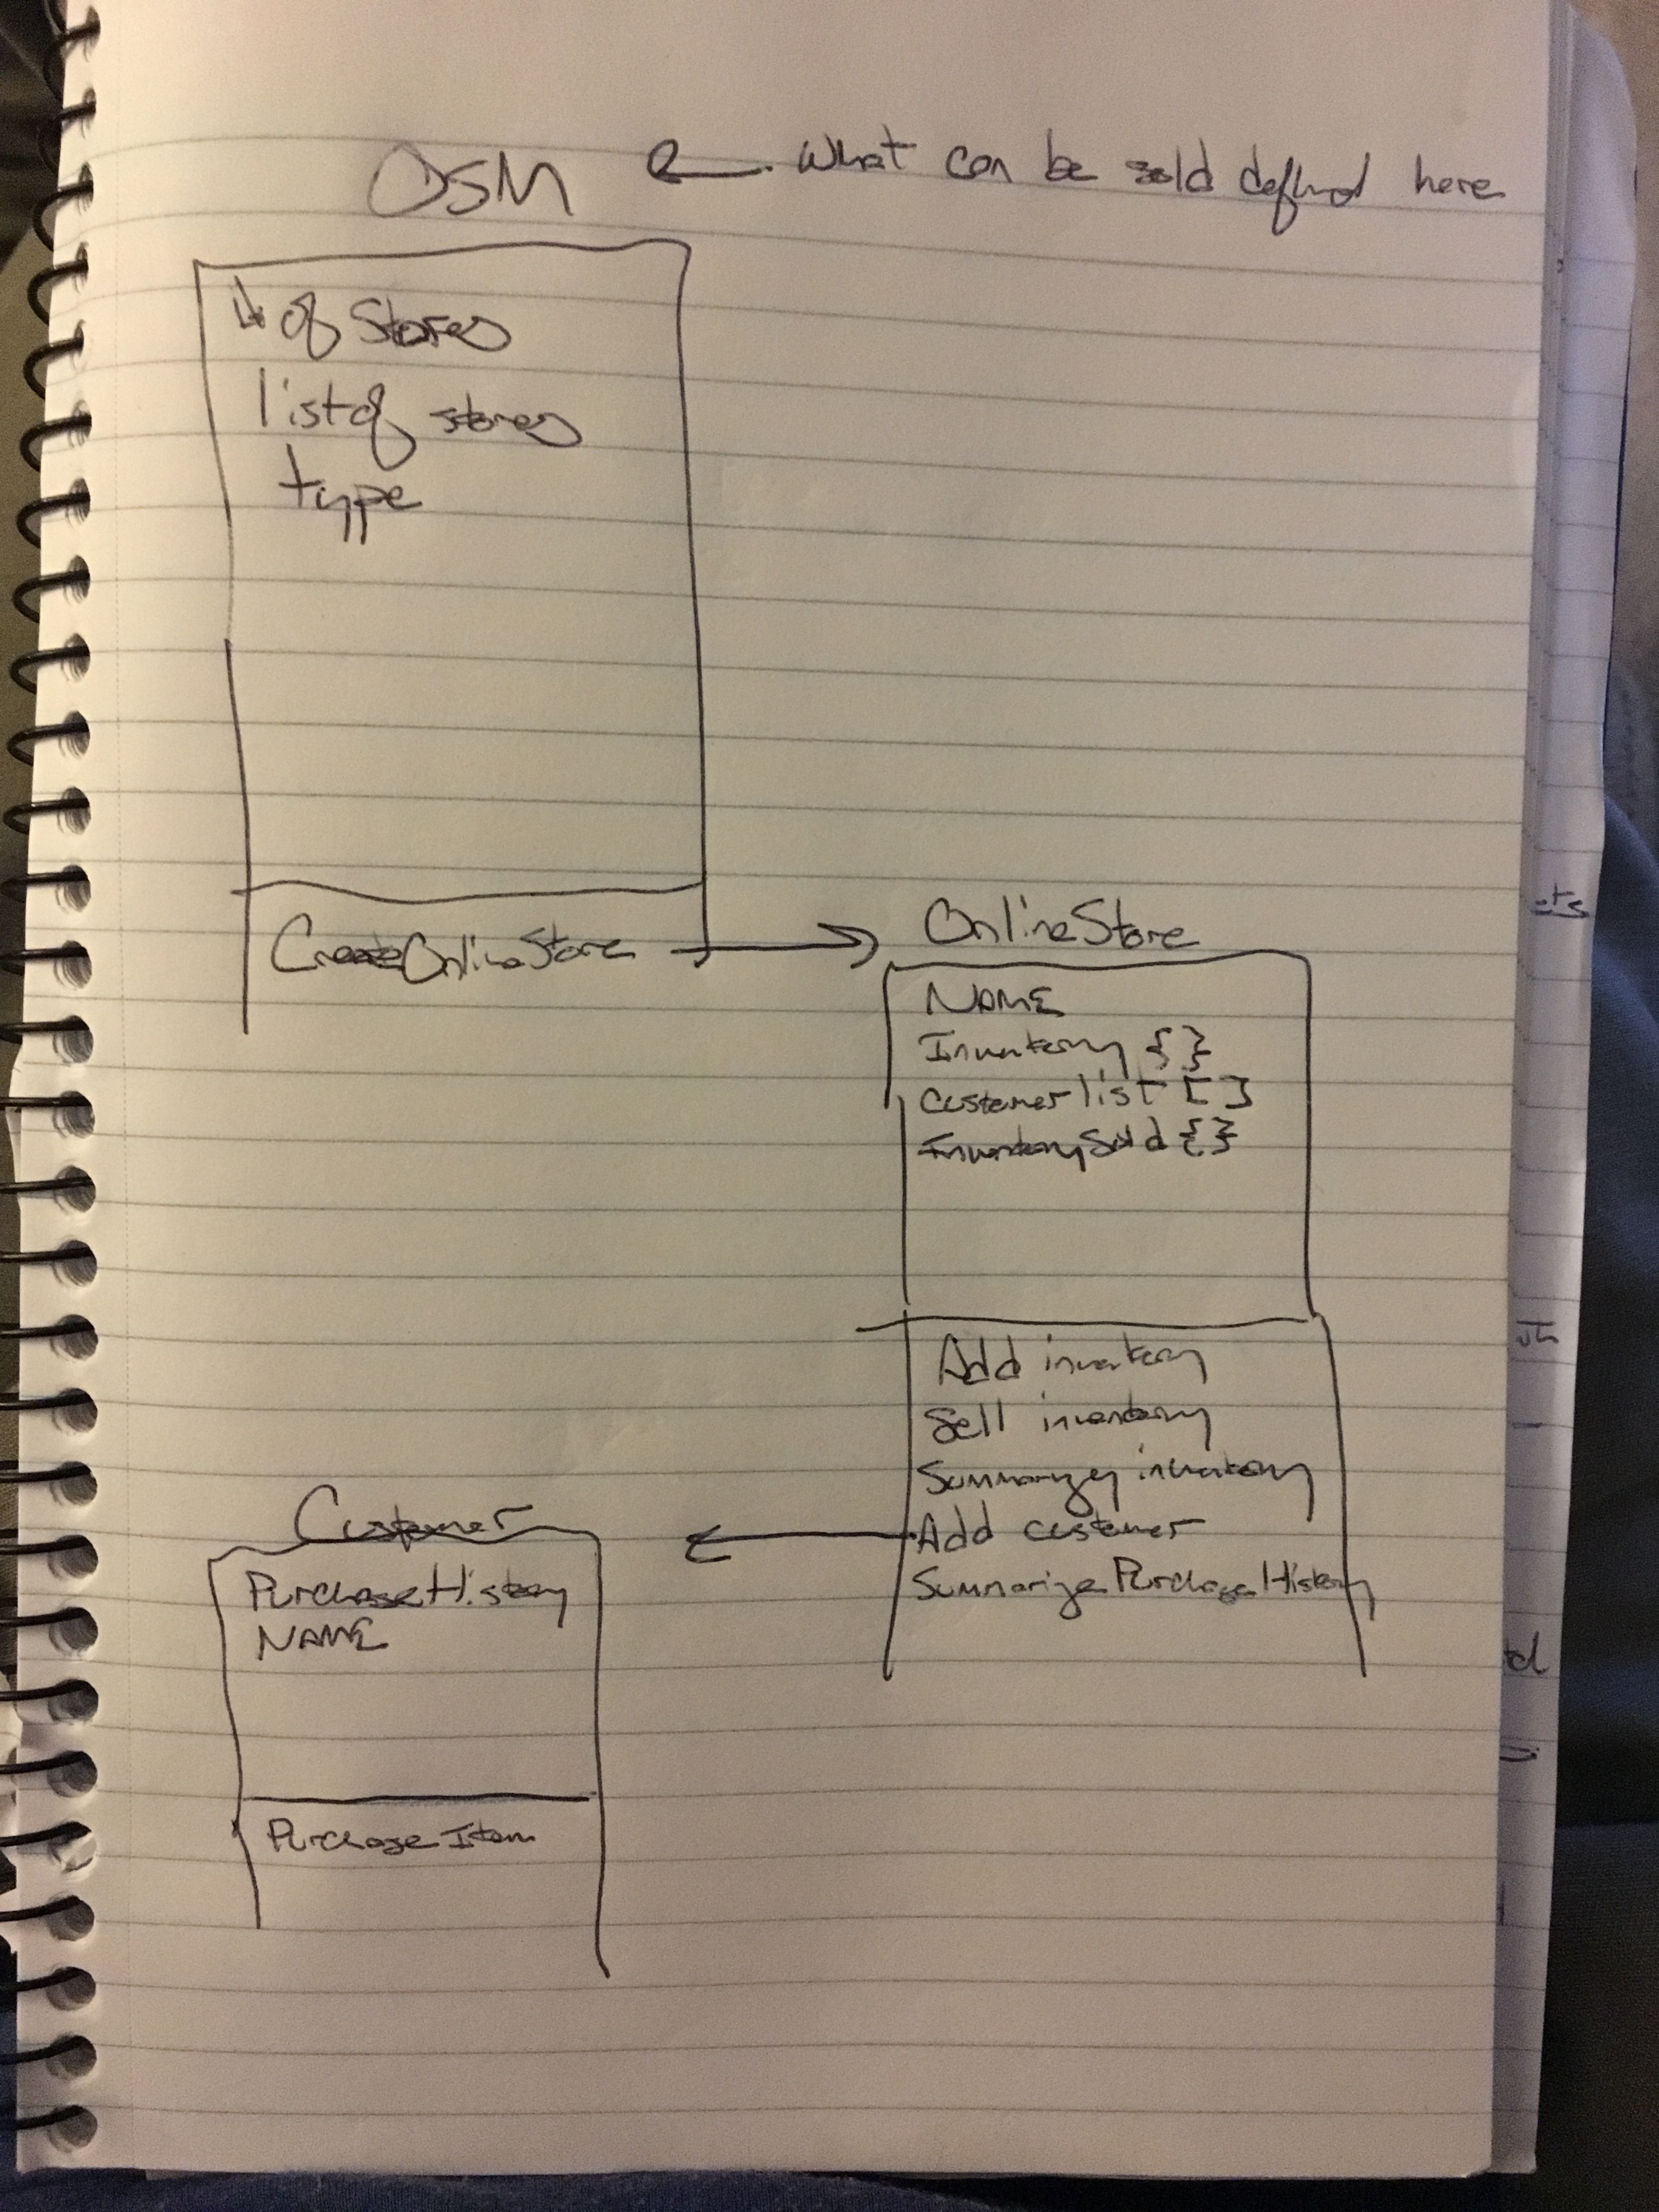 OSM ← What can be sold defined here
# of Stores
list of stores
type
CreateOnlineStore →
OnlineStore
NAME
Inventory { }
Customer list [ ]
InventorySold { }
Add inventory
Sell inventory
Summarize inventory
Add customer
Summarize Purchase History
Customer
Purchase History
NAME
Purchase Item
ets
td